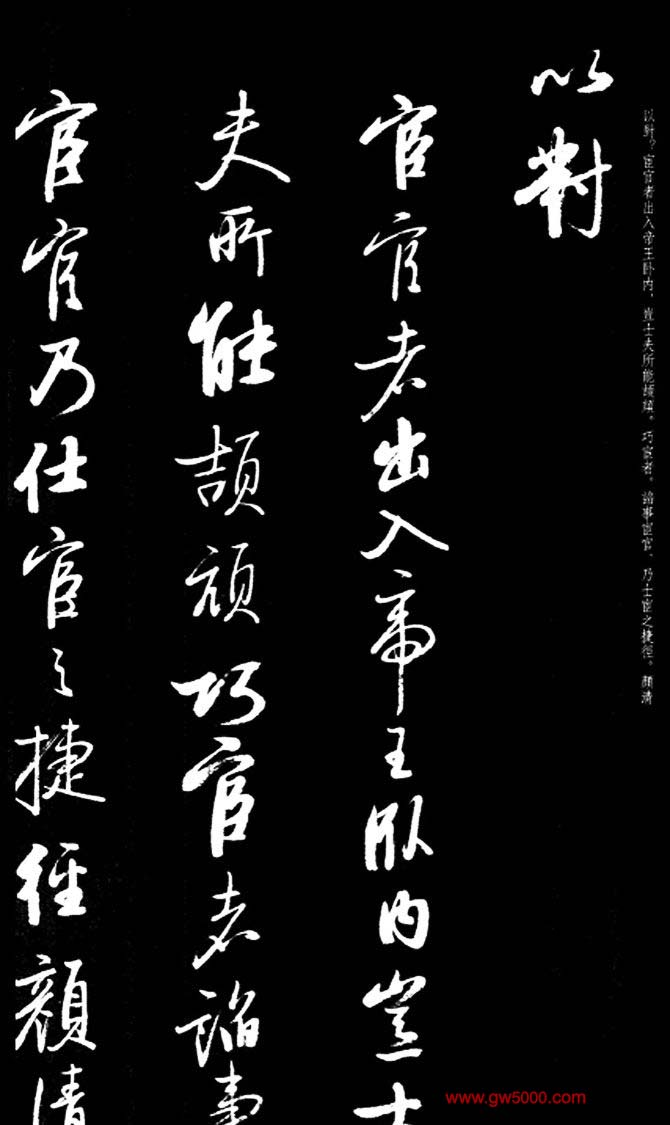 以對
宦官者出入帝王臥内豈士
夫所能頡頏巧宦者諂事
宦官乃仕宦之捷徑顏清
以對？宦官者出入帝王卧内，豈士夫所能頡頏。巧宦者，諂事宦官，乃士宦之捷徑。顏清
www.gw5000.com